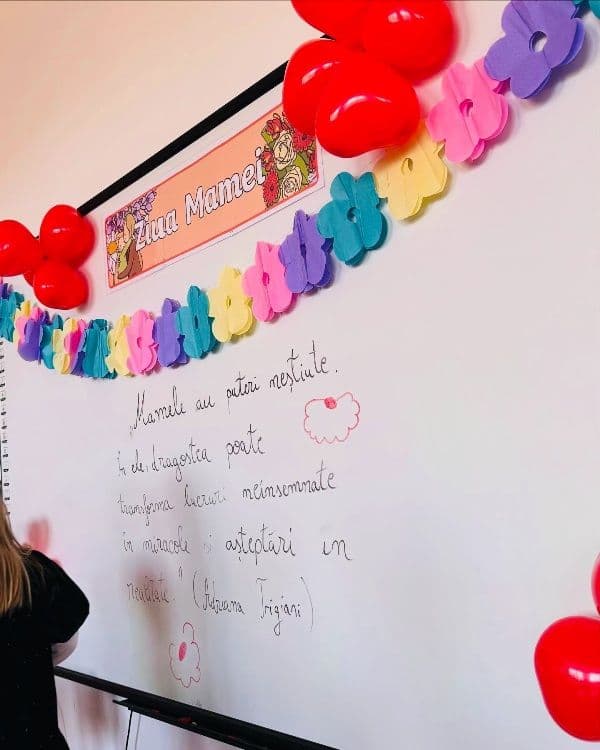 Ziua Mamei
„Mamele au puteri neștiute.
În ele, dragostea poate
transforma lucruri neînsemnate
în miracole și așteptări în
realitate." (Adriana Trigiani)